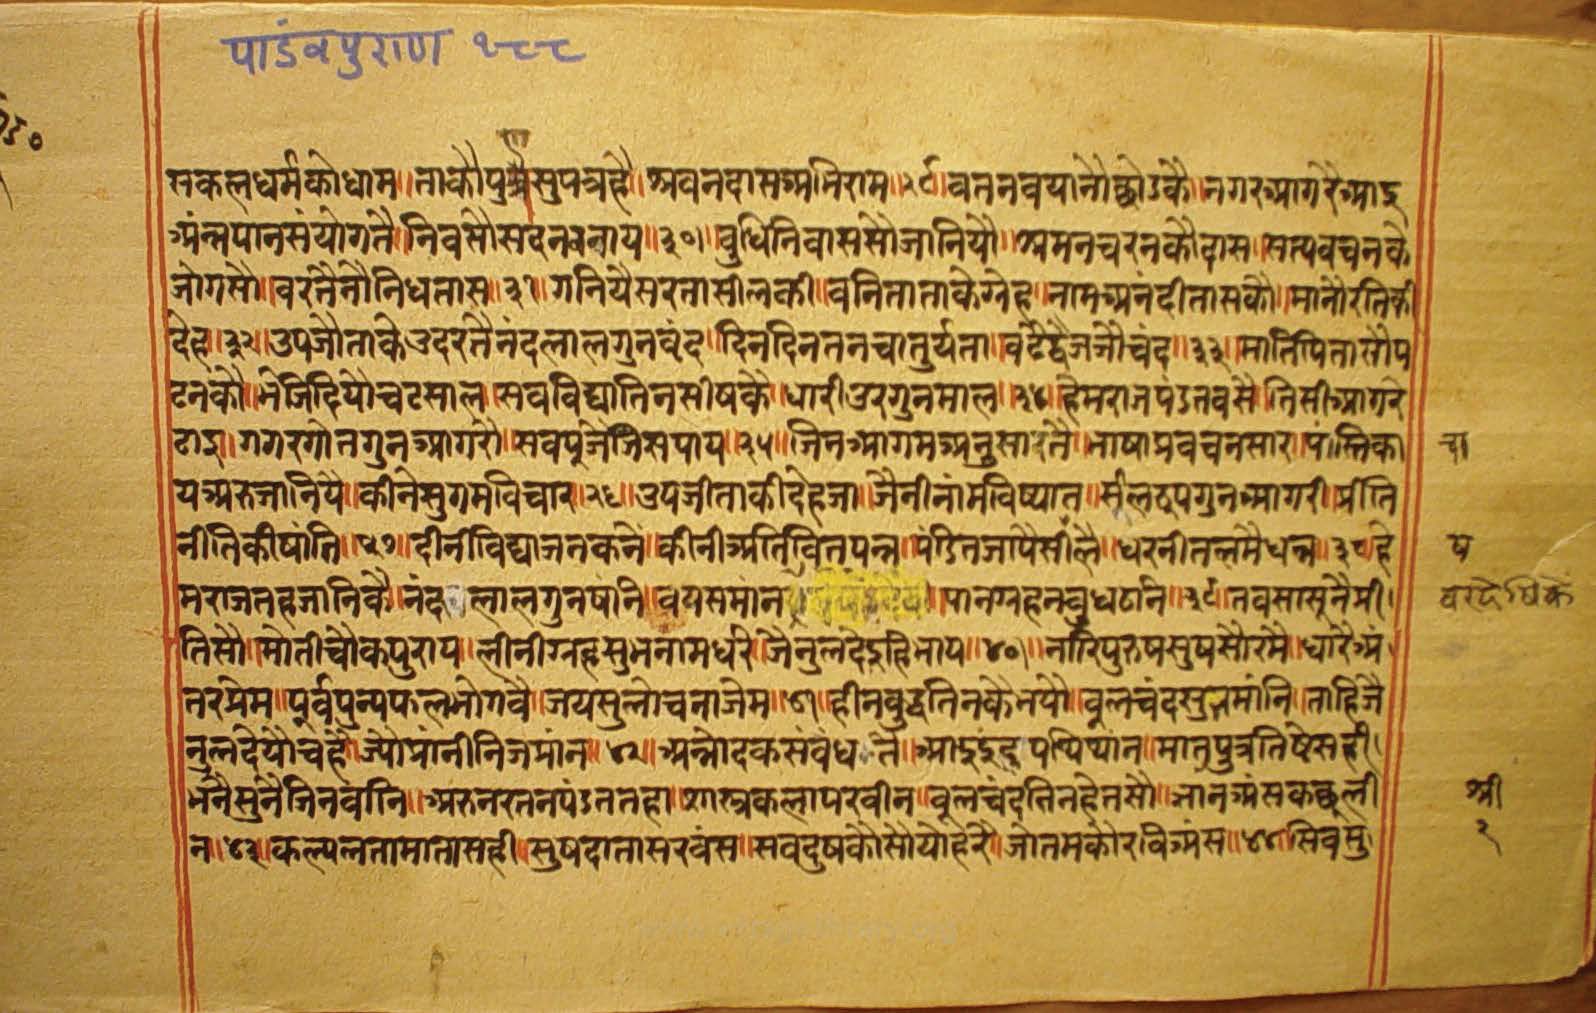 पांडवपुराण १८८
सकलधर्मकोधाम॥ ताकौपुत्रसुपत्रहै॥ श्रवनदासअभिराम॥२९॥वतनवयानौछोडकै॥नगरआगरैआइ
अंन्नपानसंयोगतै॥निवसौसदनवनाय॥३०॥बुधिनिवाससौजानियौ॥श्रमनचरनकौदास॥सत्यवचनकै
जोगसौ॥वरतैनौनिधतास॥३१॥गनियैसरतासीलकी॥वनिताताकेग्नेह॥नामअनंदीतासकौ॥मानौरतिकी
देह॥३२॥उपजौताकेउदरतैनंदलालगुनवृंद॥दिनदिनतनचातुर्यता॥वढैद्वैजजौचंद॥३३॥मातपितासौप
ठनकौ॥भेजिदियौचटसाल॥सवविद्यातिनसीषकै॥धारीउरगुनमाल॥३४॥हेमराजपंडतवसै॥तिसीआगरे
ठाइ॥गगरगोतगुनआगरौ॥सवपूजैजिसपाय॥३५॥जिनआगमअनुसारतै॥भाषाप्रवचनसार॥पंस्तिका
यअरुजानियै॥कीनेसुगमविचार॥३६॥उपजीताकीदेहजा॥जैनीनांमविष्यात॥सीलरूपगुनआगरी॥प्रीति
नीतिकीषांति॥३७॥दीनीविद्याजनकनै॥कीनीअतिवितपन्न॥पंडितजापैसीलै॥धरनीतलमैधन्न॥३८॥हे
मराजतहजानिकै॥नंदलालगुनषांनि॥वयसमांन पानग्रहनवुधठानि॥३९॥तवसासूनैप्री
तिसौ॥मोतीचौकपुराय॥लीनीग्नहसुभनामधरि॥जैनुलदेइहिभाय॥४०॥नारिपुरुषसुषसौरमै॥धारैअं
तरप्रेम॥पूर्वपुन्यफलभोगवै॥जयसुलोचनाजेम॥४१॥हीनबुद्धतिनकैभयौ॥वूलचंदसुतमांनि॥ताहिजै
नुलदेयौचहै॥ज्यौप्रांनीनिजप्रांन॥४२॥अन्नोदकसंवंधतै॥आइइंद्रपथिथांन॥मातपुत्रतिष्ठेसही
भनैसुनैजिनवांनि॥अरुनरतनपंडततहा॥शास्त्रकलापरवीन॥वूलचंदतिनहैतसौ॥ज्ञानअंसकछुली
न॥४३॥कल्पलतामातासही॥सुषदातासरवंस॥सवदुषकौसौयौहरै॥जोतमकौरविअंस॥४४॥सिवसु
चा
ष
श्री
२